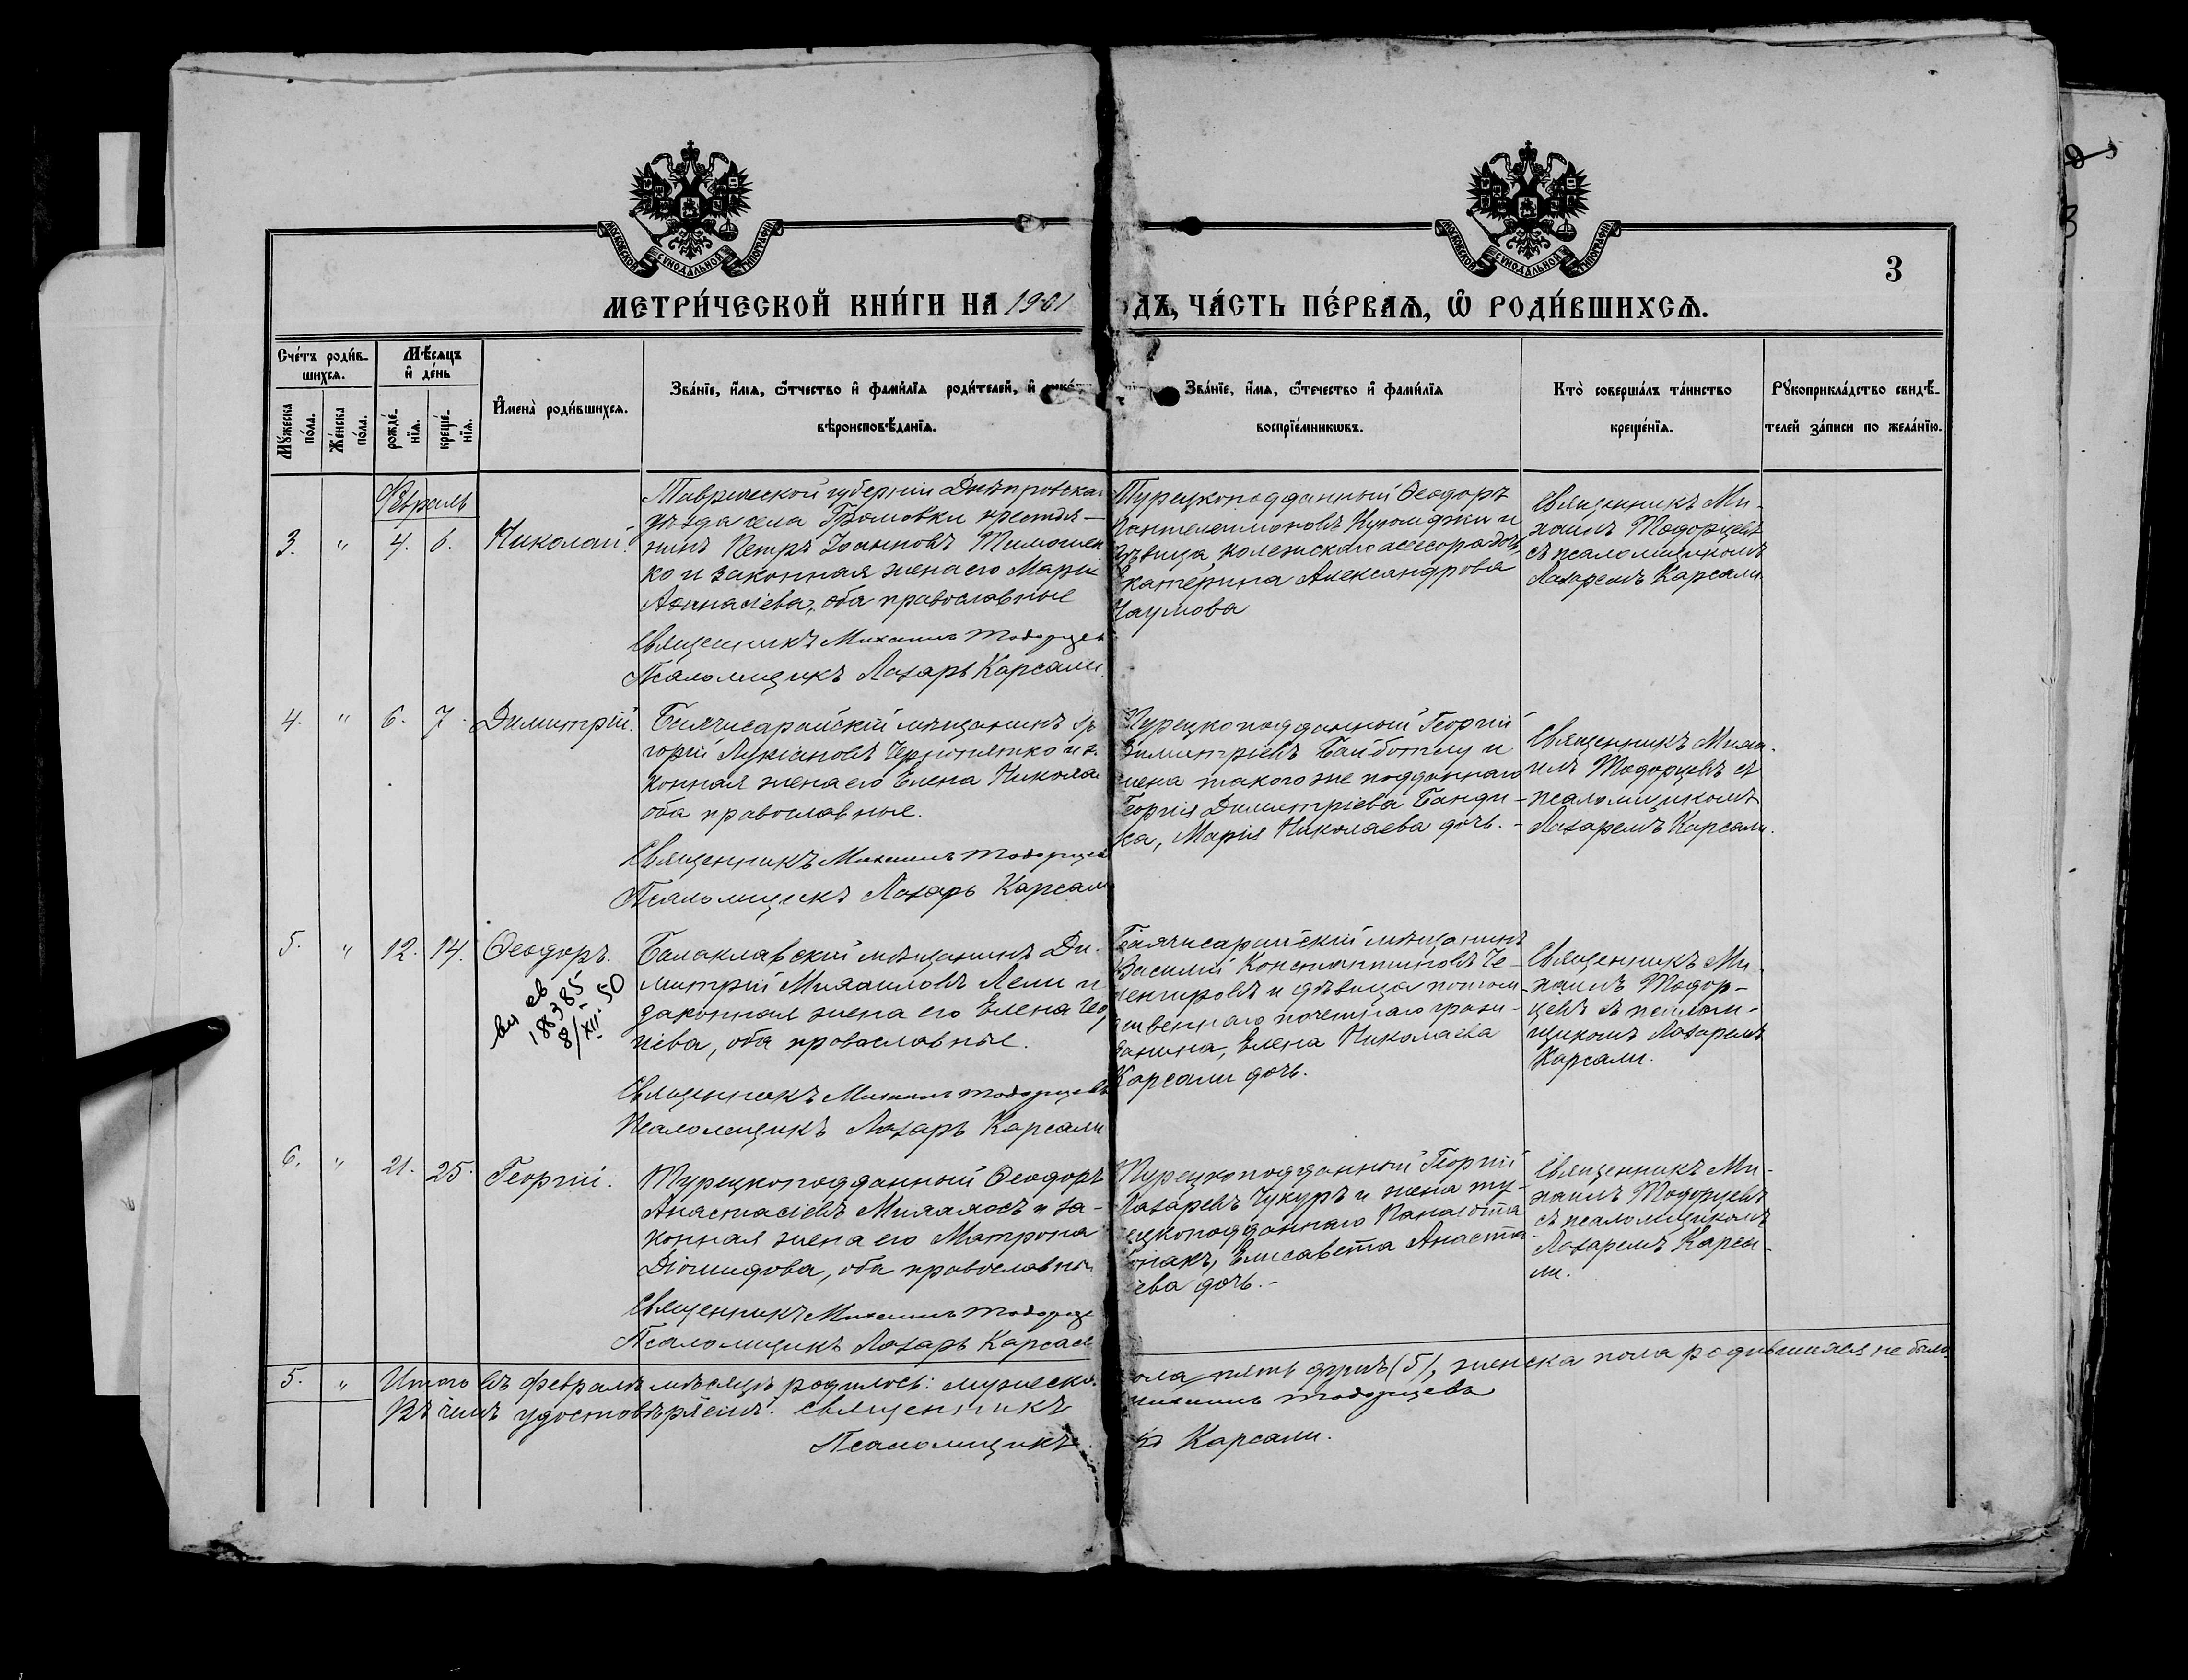 3
МЕТРИ́ЧЕСКОЙ КНИ́ГИ НА 1901
ДЪ, ЧА́СТЬ ПЕ́РВАѦ, Ѡ҆ РОДИ́ВШИХСѦ.
Сче́тъ роди́в-
шихсѧ.
Мѣ́сѧцъ
и҆ де́нь
Мꙋ́жеска
по́ла.
Же́нска
по́ла.
рожде́-
нїѧ.
креще́-
нїѧ.
И҆мена̀ роди́вшихсѧ.
Зва́нїе, и҆́мѧ, ѻ҆́тчество и҆ фами́лїѧ роди́телей, и҆
вѣроисповѣ́данїѧ.
Зва́нїе, и҆́мѧ, ѻ҆те́чество и҆ фами́лїѧ
воспрїе́мникѡвъ.
Кто̀ соверша́лъ та́инство
креще́нїѧ.
Рꙋкоприкла́дство свидѣ́-
телей за́писи по жела́нїю.
Февраль
3. " 4. 6. Николай.
Таврической губерніи Днѣпровска
уѣзда села Громовки крестья-
нинъ Петръ Іоанновъ Тимошен
ко и законная жена его Марія
Аѳанасіева, оба православные
Священникъ Михаилъ Тодорцев
Псаломщикъ Лазарь Карсали.
Турецкоподданный Ѳеодоръ
Пантелеимоновъ и
дѣвица, коллежскаго ассесора дочь
Екатерина Александрова
Наумова
Священникъ Ми-
хаилъ Тодорцевъ
съ псаломщикомъ
Лазаремъ Карсали
4. " 6. 7. Димитрій.
Бахчисарайскій мѣщанинъ Гр
горій Лукіановъ и за
конная жена его Елена Никола
оба православные.
Священникъ Михаилъ Тодорцев
Псаломщикъ Лазарь Карсали
Турецкоподданный Георгій
Димитріевъ и
жена такого же подданнаго
Георгія Димитріева Банди-
ка, Марія Николаева дочь. -
Священникъ Миха-
илъ Тодорцевъ съ
псаломщикомъ
Лазаремъ Карсали.
5. " 12. 14. Ѳеодоръ.
выд св
188385
8/XII. 50
Балаклавскій мѣщанинъ Ди-
митрій Михаиловъ Лели и
законная жена его Елена Геор
гіева, оба православные.
Священникъ Михаилъ Тодорцевъ
Псаломщикъ Лазарь Карсали
Бахчисарайскій мѣщанинъ
Василій Константиновъ Че-
и дѣвица потом-
ственнаго почетнаго граж-
данина, Елена Николаева
Карсали дочь.
Священникъ Ми-
хаилъ Тодор-
цевъ съ псалом-
щикомъ Лазаремъ
Карсали.
6. " 21. 25. Георгій.
Турецкоподданный Ѳеодоръ
Анастасіевъ Михалосъ и за-
конная жена его Матрона
Діомидова, оба православны
Священникъ Михаилъ Тодорце
Псаломщикъ Лазарь Карсали
Турецкоподданный Георгій
Лазаревъ Чукуръ и жена ту-
рецкоподданнаго Панаіота
Елисавета Анаста-
сіева дочь. -
Священникъ Ми-
хаилъ Тодорцевъ
съ псаломщикомъ
Лазаремъ Карса-
ли.
5. " Итого въ февралѣ мѣсяцѣ родилось: мужеска
ола пять душъ (5), женска пола родившихся не было.
Въ чемъ удостовѣряемъ. Священникъ
Михаилъ Тодорцевъ
Псаломщикъ
Карсали.